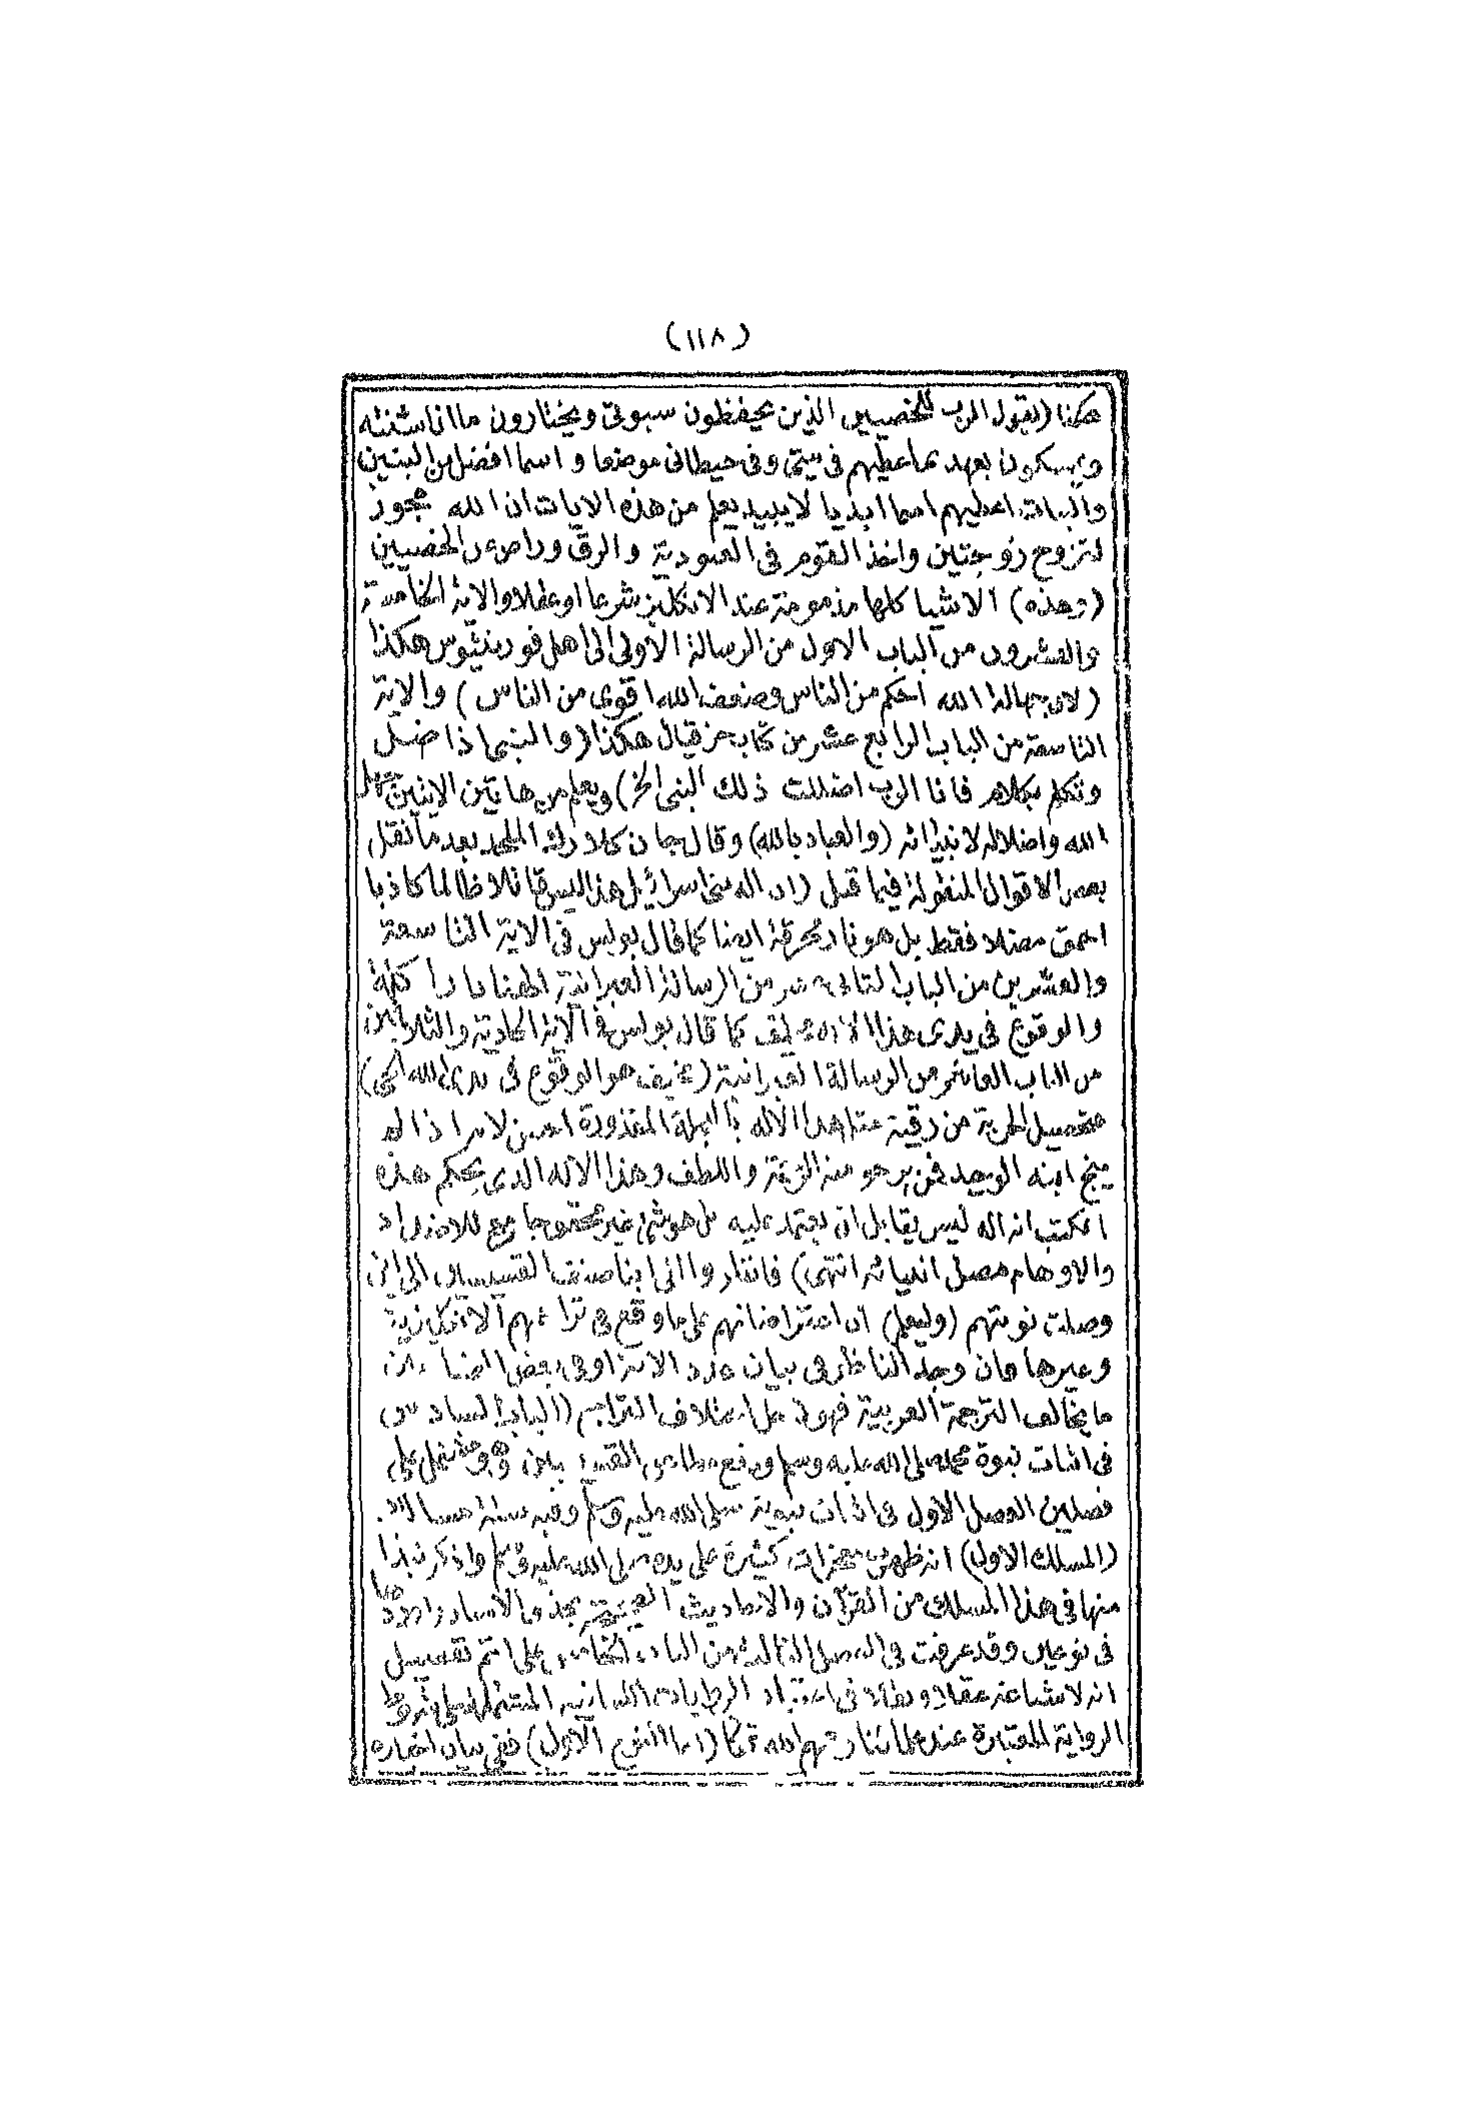 (١١٨)
هكذا (يقول الرب للخصيين الذين يحفظون سبوتى ويختارون ما انا شئته
ويمسكون بعهدى اعطيهم فى بيتى وفى حيطانى موضعا و اسما افضل من البنين
والبنات اعطيهم اسما ابديا لا يبيد يعلم من هذه الايات ان الله مجوز
لتزوج زوجتين واخذ القوم فى العبودية والرق وراض عن الخصيين
(وهذه) الاشيا كلها مذمومة عند الانكليز شرعا او عقلا والاية الخامسة
والعشرون من الباب الاول من الرسالة الاولى الى اهل قورينثيوس هكذا
(لان جهالة الله احكم من الناس وضعف الله اقوى من الناس) والاية
التاسعة من الباب الرابع عشر من كتاب حزقيال هكذا (والنبى اذا ضل
وتكلم بكلام فانا الرب اضللت ذلك النبى الخ) ويعلم من هاتين الايتين جهل
الله واضلاله لانبيائه (والعياذ بالله) وقال جان كلارك الملحد بعد ما نقل
بعض الاقوال المنقولة فيما قبل (ان اله بنى اسرائيل هذا ليس قاتلا ظالما كاذبا
احمق مضلا فقط بل هو نار محرقة ايضا كما قال بولس فى الاية التاسعة
والعشرين من الباب الثانى عشر من الرسالة العبرانية الهنا نار اكلة
والوقوع فى يدى هذا الاله مخيف كما قال بولس فى الاية الحادية والثلاثين
من الباب العاشر من الرسالة العبرانية (مخيف هو الوقوع فى يدى الله الحى)
فتحصيل الحرية من رقية مثل هذا الاله بالعجلة المقدورة احسن لانه اذا لم
ينج ابنه الوحيد فمن يرجو منه الرحمة واللطف وهذا الاله الذى يحكم هذه
الكتب انه اله ليس بقابل ان يعتمد عليه بل هو شئ غير محقق جامع للاضداد
والاوهام مضل انبيائه انتهى) فانظروا الى ابنا صنف القسيسين الى اين
وصلت نوبتهم (وليعلم) ان اعتراضاتهم على ما وقع فى تراجمهم الانكليزية
وغيرها فان وجد الناظر فى بيان عدد الاية او فى بعض المضامين
ما يخالف الترجمة العربية فهو من اختلاف التراجم (الباب السادس)
فى اثبات نبوة محمد صلى الله عليه وسلم ودفع مطاعن القسيسين وهو مشتمل على
فصلين الفصل الاول فى اثبات نبوته صلى الله عليه وسلم وفيه ستة مسالك
(المسلك الاول) انه ظهرت معجزات كثيرة على يده صلى الله عليه وسلم واذكر نبذا
منها فى هذا المسلك من القرآن والاحاديث الصحيحة بحذف الاسناد
فى نوعين وقد عرفت فى الفصل الثالث من الباب الخامس على اتم تفصيل
انه لا شناعة عقلا ونقلا فى اعتبار الروايات اللسانية المشتملة على شروط
الرواية المعتبرة عند علمائنا رحمهم الله تعالى (اما النوع الاول) ففى بيان اخباره